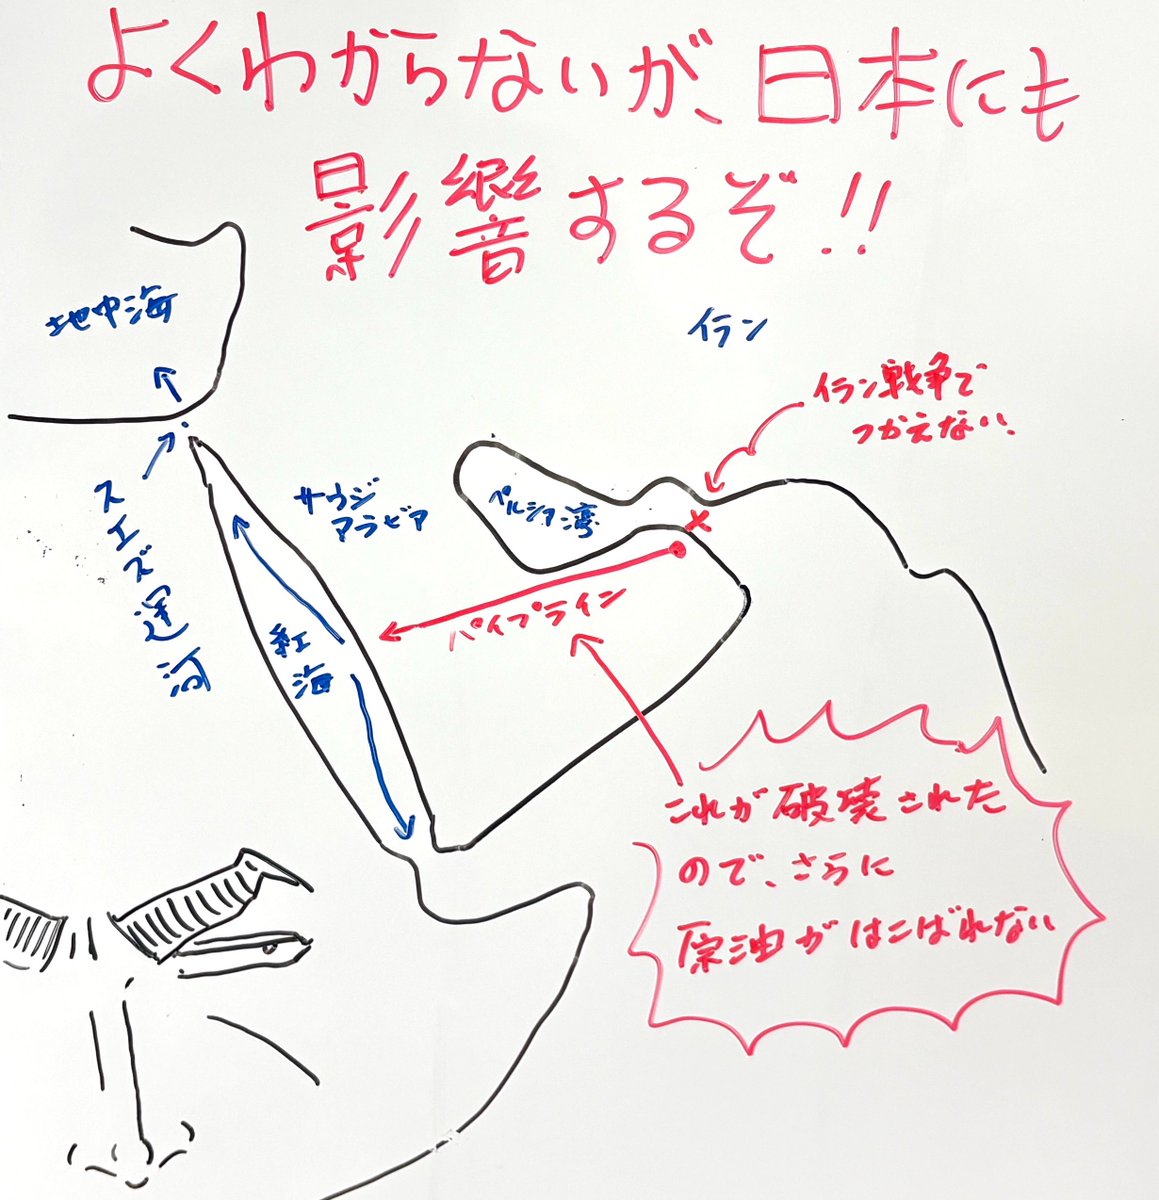 よくわからないが、日本にも
影響するぞ!!
地中海
イラン
イラン戦争で
つかえない、
スエズ運河
サウジ
アラビア
ペルシア湾
パイプライン
紅海
これが破壊された
ので、さらに
原油がはこばれない